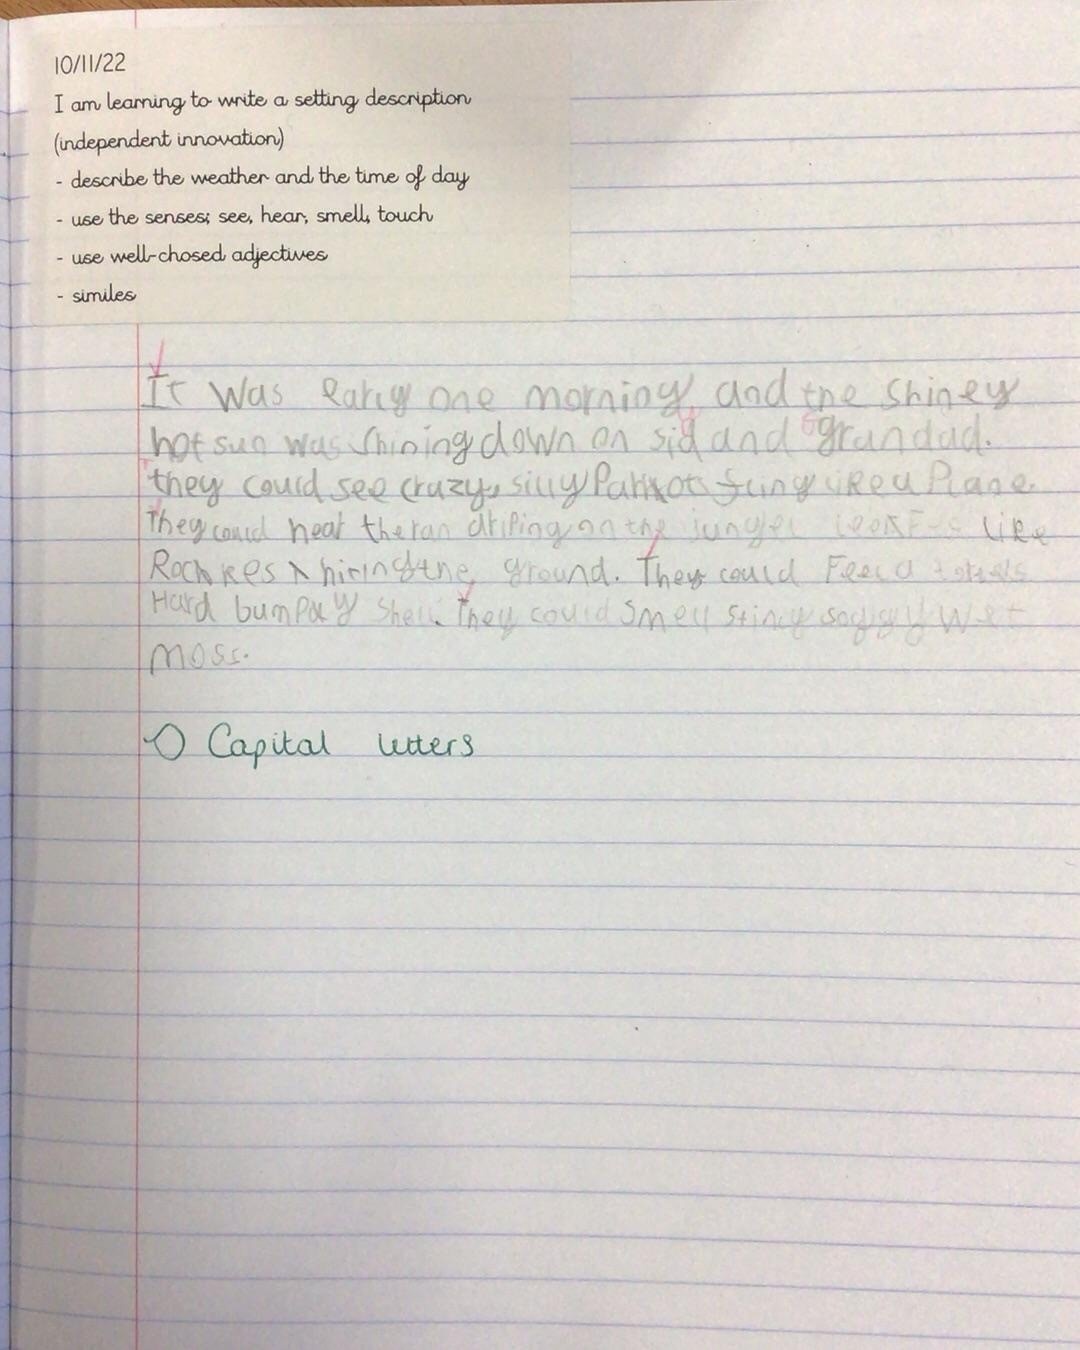 10/11/22
I am learning to write a setting description
(independent innovation)
- describe the weather and the time of day
- use the senses; see, hear, smell, touch
- use well-chosed adjectives
- similes
It was early one morning and the shiney
hot sun was shining down on sid and grandad.
they could see crazy, silly Parrots like a Plane.
They could hear the ran driping on the like
the ground. They could Feel a
Hard bumpy shell. They could smell wet
moss.
Capital letters